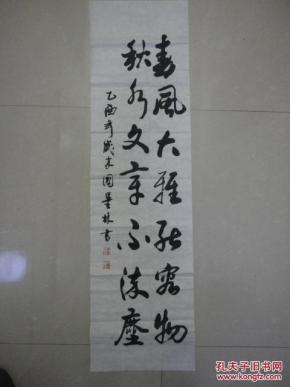 春風大雅能容物
秋水文章不染塵
乙酉年歲末國景林書
孔夫子旧书网